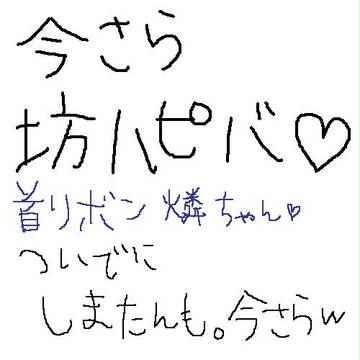 今さら
坊ハピバ♡
首リボン 燐ちゃん♡
ついでに
しまたんも。今さらw